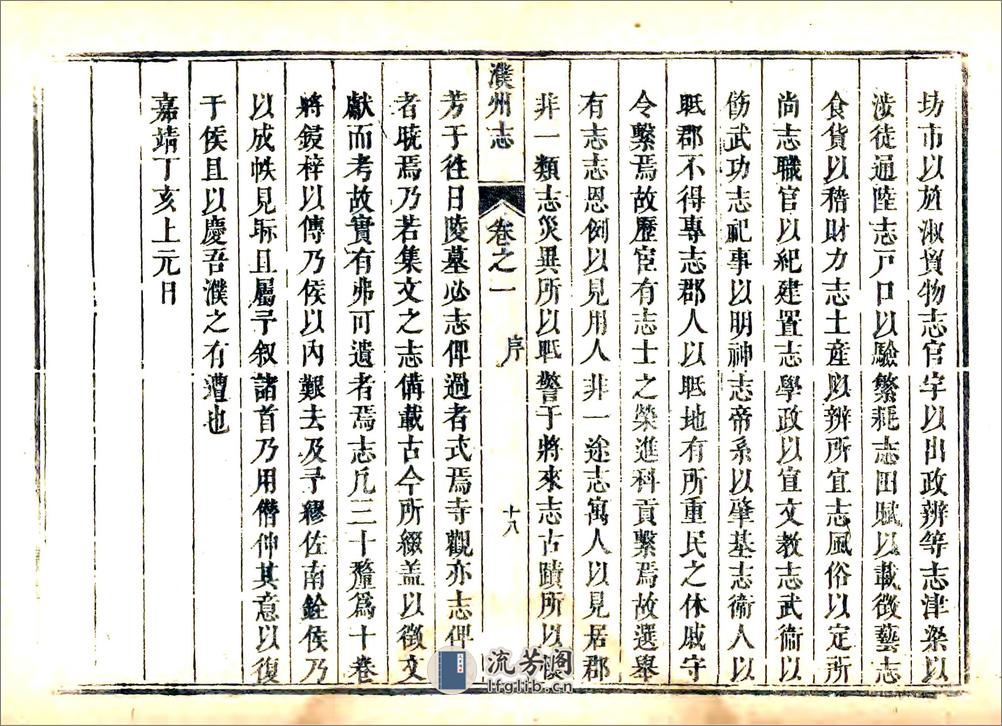 坊市以旅淑貿物志官宇以出政辨等志津梁以
涉徒通陸志戸口以驗繁耗志田賦以載徵藝志
食貨以稽財力志土産以辨所宜志風俗以定所
尚志職官以紀建置志學政以宣文教志武衛以
飭武功志祀事以明神志帝系以肇基志衛人以
眂郡不得專志郡人以眂地有所重民之休戚守
令繫焉故歷宦有志士之榮進科貢繫焉故選舉
有志志恩例以見用人非一途志寓人以見居郡
非一類志災異所以眂警于將來志古蹟所以
濮州志 卷之一 序 十八
芳于徃日陵墓必志俾過者式焉寺觀亦志俾
者曉焉乃若集文之志備載古今所綴盖以徵文
獻而考故實有弗可遺者焉志凡三十釐爲十卷
將鋟梓以傳乃侯以内艱去及予繆佐南銓侯乃
以成帙見眎且屬予叙諸首乃用僭伸其意以復
于侯且以慶吾濮之有遭也
嘉靖丁亥上元日
流芳閣
lfglib.cn